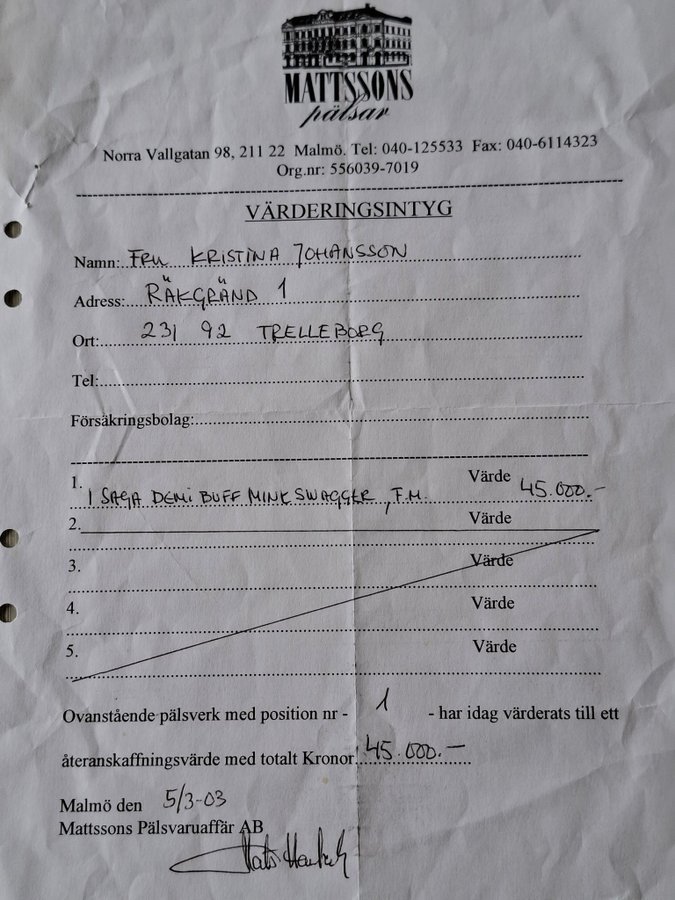 MATTSSONS
pälsar
Norra Vallgatan 98, 211 22 Malmö. Tel: 040-125533 Fax: 040-6114323
Org.nr: 556039-7019
VÄRDERINGSINTYG
Namn: FRU KRISTINA JOHANSSON
Adress: RÄKGRÄND 1
Ort: 231 92 TRELLEBORG
Tel:
Försäkringsbolag:
1. 1 SAGA DEMI BUFF MINK SWAGGER, F.M. Värde 45.000.-
2. Värde
3. Värde
4. Värde
5. Värde
Ovanstående pälsverk med position nr - 1 - har idag värderats till ett
återanskaffningsvärde med totalt Kronor: 45.000.-
Malmö den 5/3-03
Mattssons Pälsvaruaffär AB